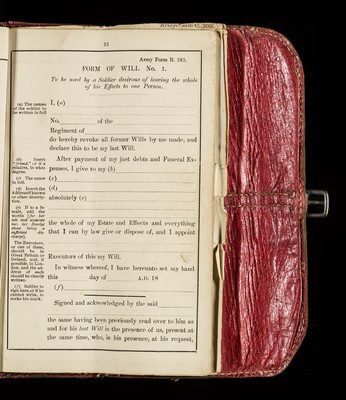 25
Army Form B. 243.
FORM OF WILL No. 1.
To be used by a Soldier desirous of leaving the whole
of his Effects to one Person.
(a) The names
of the soldier to
be written in full
I, (a)
No. of the
Regiment of
do hereby revoke all former Wills by me made, and
declare this to be my last Will.
(b) Insert
"friend," or if a
relative, in what
degree.
After payment of my just debts and Funeral Ex-
penses, I give to my (b)
(c) The name
in full.
(c)
(d) Insert the
Address if known
or other descrip-
tion.
(d)
absolutely (e)
(e) If to a fe-
male, add the
words "for her
sole and separate
use, her Receipt
alone being a
sufficient dis-
charge).
the whole of my Estate and Effects and everything
that I can by law give or dispose of, and I appoint
The Executors,
or one of them,
should be in
Great Britain or
Ireland, and, if
possible, in Lon-
don, and the ad-
dress of each
should be clearly
written.
Executors of this my Will.
In witness whereof, I have hereunto set my hand
this day of A.D. 18
(f) Soldier to
sign here, or if he
cannot write, to
make his mark.
(f)
Signed and acknowledged by the said
the same having been previously read over to him as
and for his last Will in the presence of us, present at
the same time, who, in his presence, at his request,